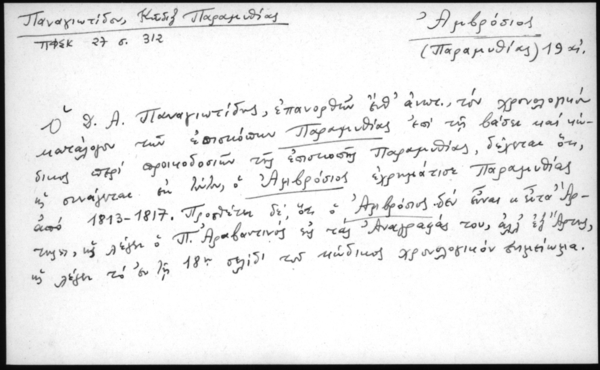 Παναγιωτίδου, Κώδιξ Παραμυθίας
ΠΦΣΚ 27 σ. 312
Ἀμβρόσιος
(Παραμυθίας) 19 αἰ.
Ὁ Δ. Α. Παναγιωτίδης, ἐπανορθῶν ἔνθ' ἀνωτ., τὸν χρονολογικὸν
κατάλογον τῶν ἐπισκόπων Παραμυθίας ἐπὶ τῇ βάσει καὶ κώ-
δικος περὶ προικοδοσιῶν τῆς ἐπισκοπῆς Παραμυθίας, δέχεται ὅτι,
ὡς συνάγεται ἐκ τούτου, ὁ Ἀμβρόσιος ἐχρημάτισε Παραμυθίας
ἀπὸ 1813-1817. Προσθέτει δέ, ὅτι ὁ Ἀμβρόσιος δὲν εἶναι Ἄρ-
της, ὡς λέγει ὁ Π. Ἀραβαντινὸς εἰς τὰς Ἀναγραφάς του, ἀλλ' ἐξ Ἄρτης,
ὡς λέγει τὸ ἐν τῇ 18ῃ σελίδι τοῦ κώδικος χρονολογικὸν σημείωμα.